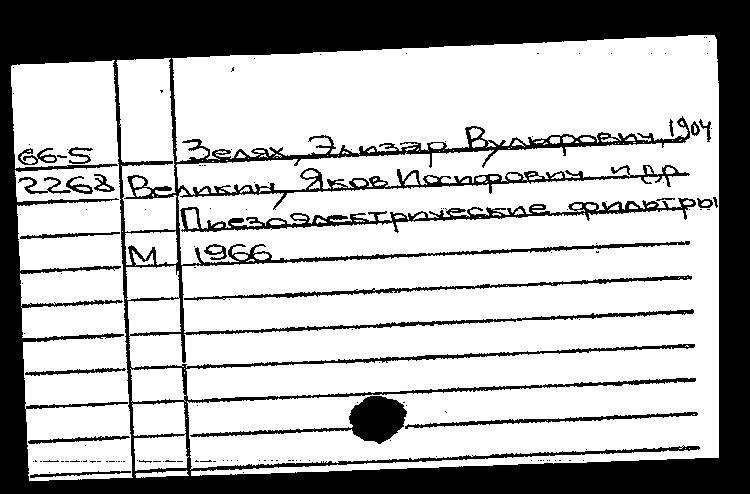 66-5 Зелях, Элизар Вульфович, 1904
2268 Великин, Яков Иосифович и др.
Пьезоэлектрические фильтры
М. 1966.